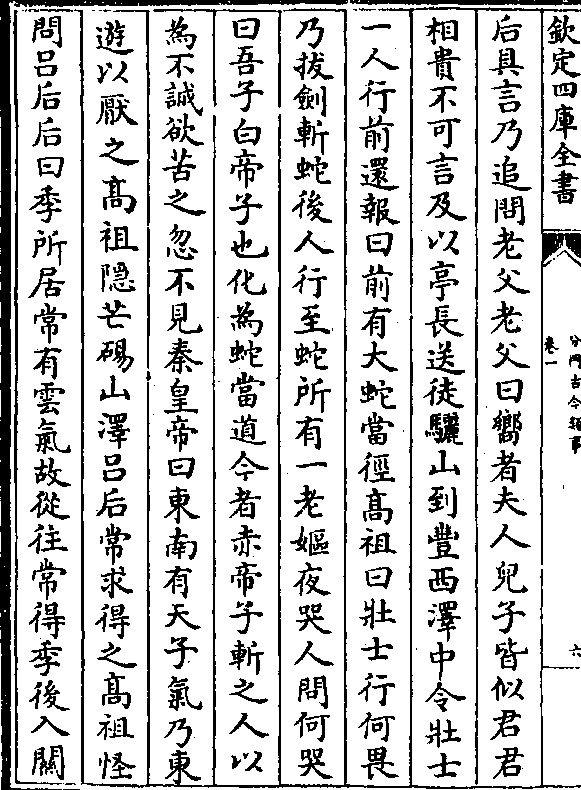 欽定四庫全書
分門古今類事
卷一
六
后具言乃追問老父老父曰嚮者夫人兒子皆似君君
相貴不可言及以亭長送徒驪山到豐西澤中令壯士
一人行前還報曰前有大蛇當徑髙祖曰壯士行何畏
乃拔劍斬蛇後人行至蛇所有一老嫗夜哭人問何哭
曰吾子白帝子也化為蛇當道今者赤帝子斬之人以
為不誠欲苦之忽不見秦皇帝曰東南有天子氣乃東
遊以厭之髙祖隠芒碭山澤吕后常求得之髙祖怪
問吕后后曰季所居常有雲氣故從往常得季後入闗